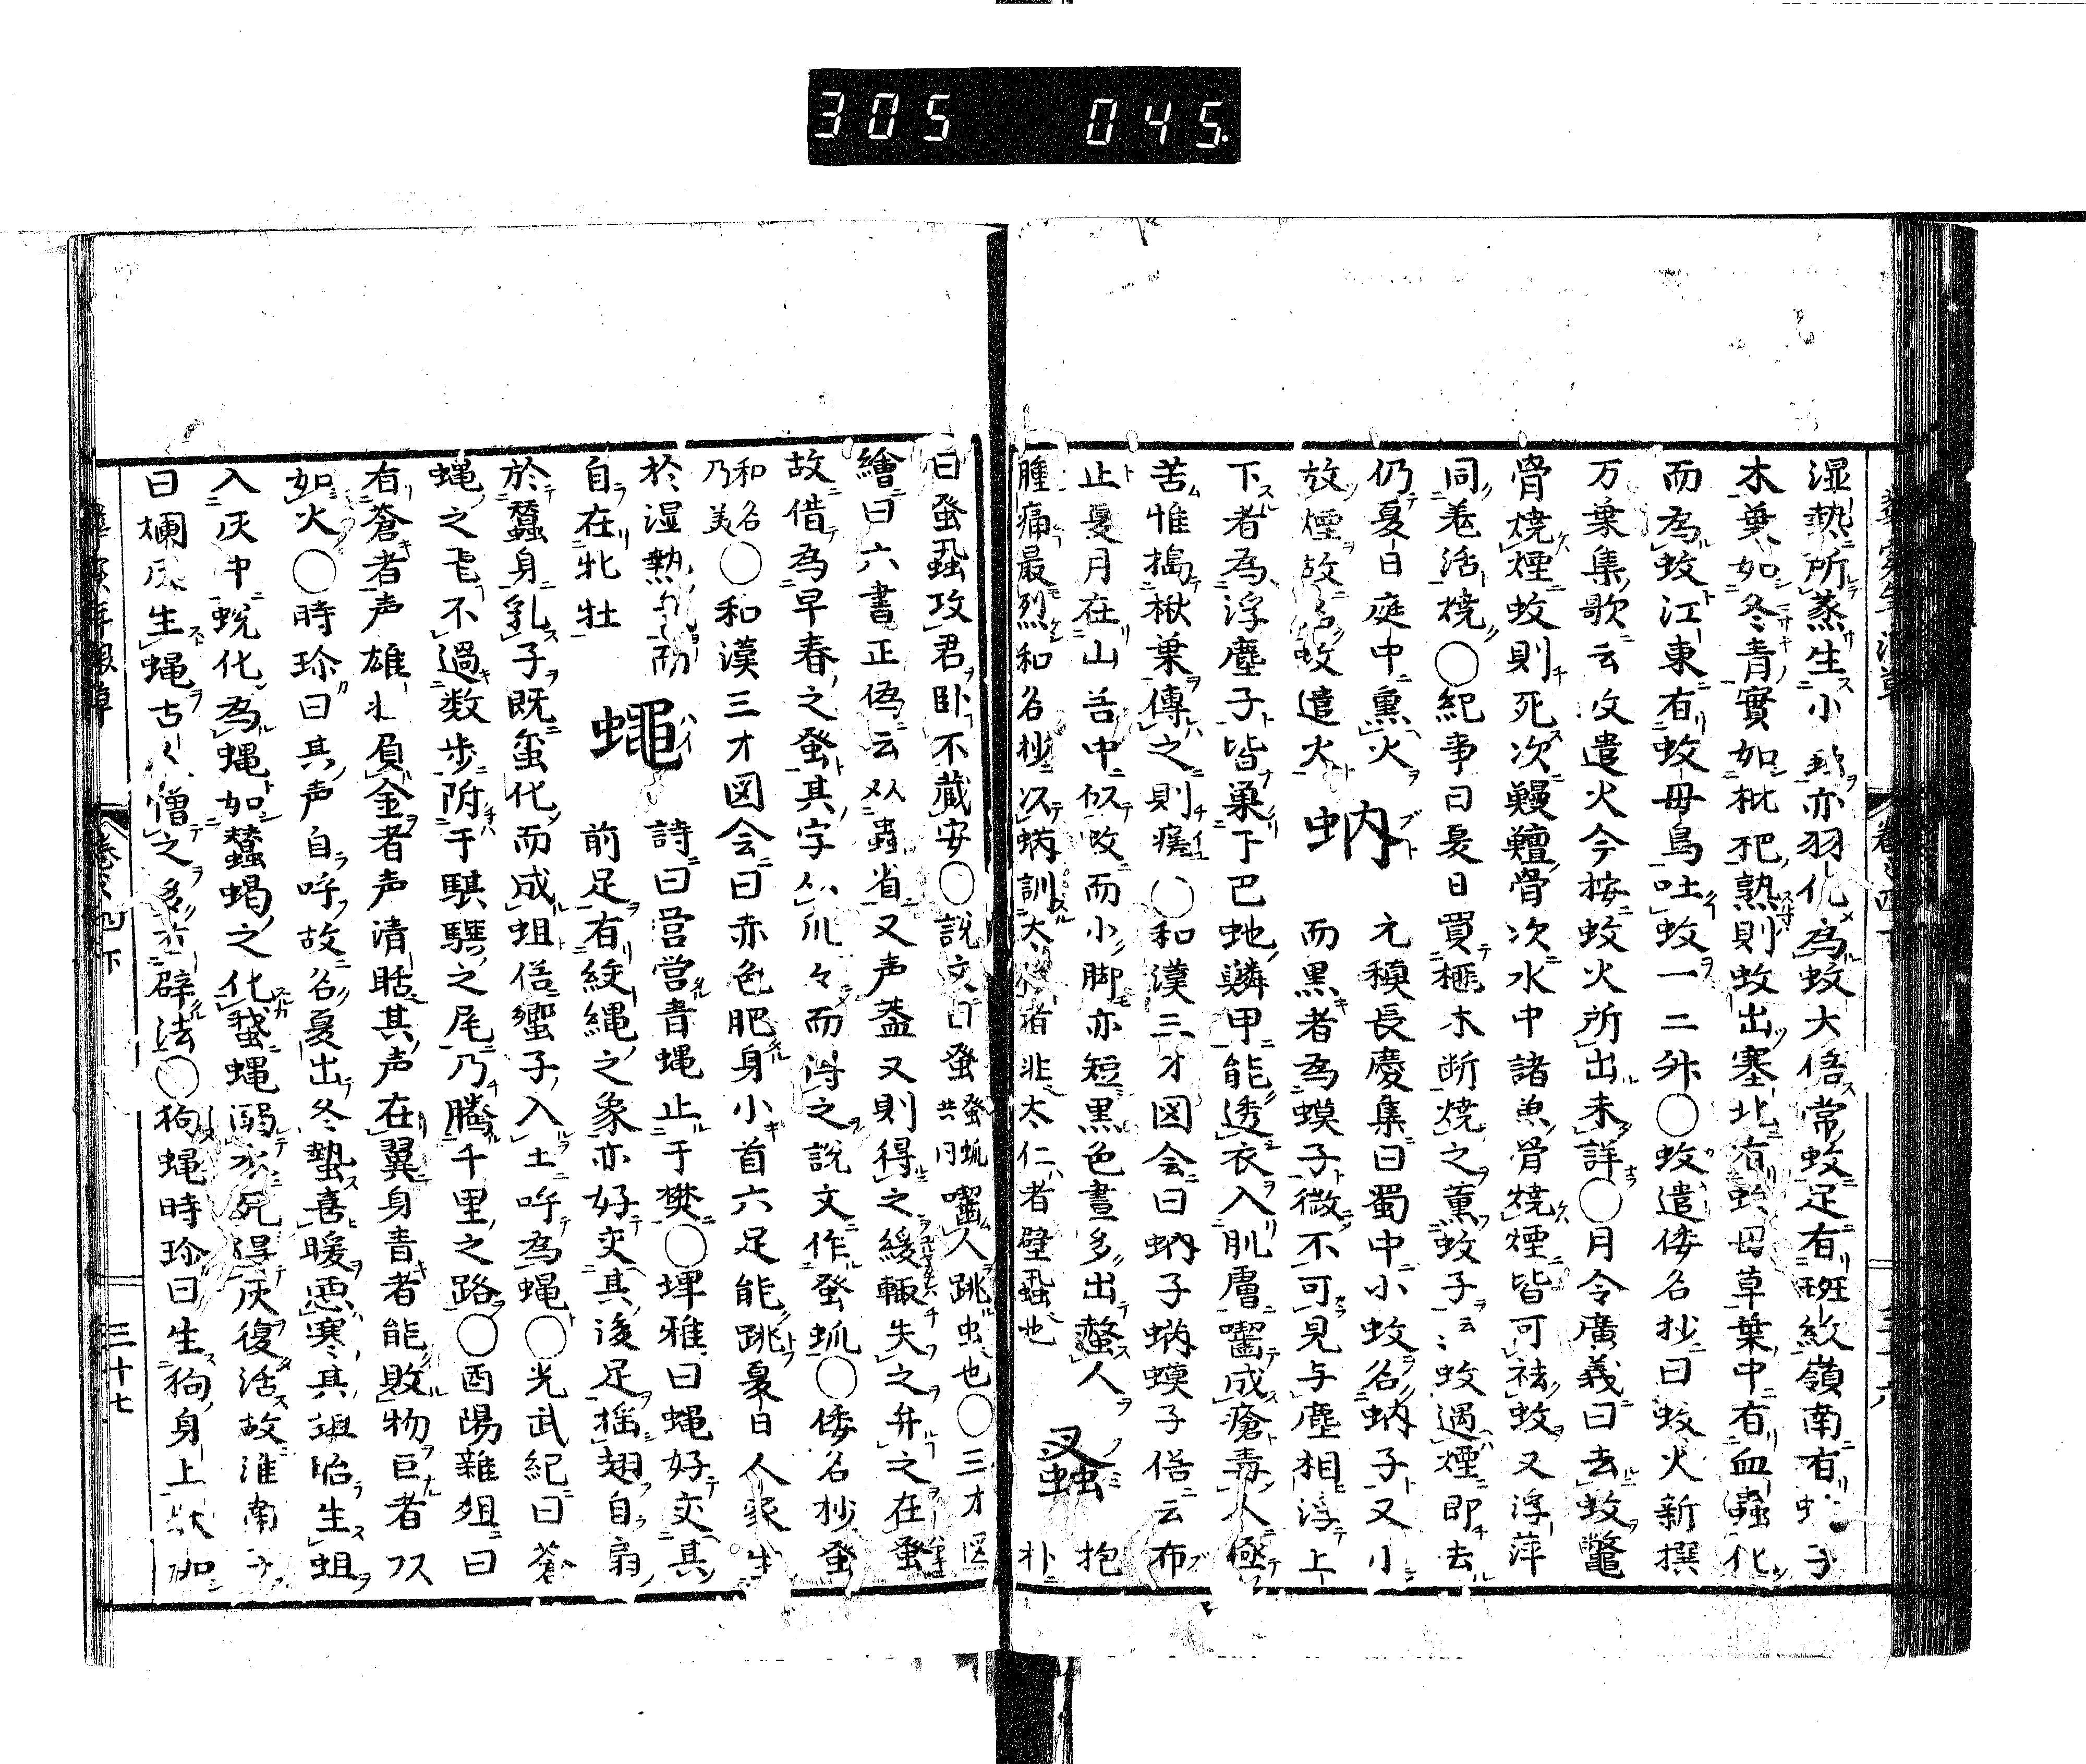 305 045.
湿熱所蒸生小亦羽化為蚊大倍常蚊足有斑紋嶺南有子
木葉如冬青實如枇杷熟則蚊出塞北有蚊母草葉中有血蟲化
而為蚊江東有蚊母鳥吐蚊一二升〇蚊遣倭名抄曰蚊火新撰
万葉集歌云蚊遣火今按蚊火所出未詳〇月令廣義曰去蚊鼈
骨焼煙蚊則死次鰻鱺骨次水中諸魚骨焼煙皆可祛蚊又浮萍
同羗活焼〇紀事曰夏日買榧木断焼之薫蚊子云蚊遇煙即去
仍夏日庭中熏火 蚋 元稹長慶集曰蜀中小蚊名蚋子又小
放煙故名蚊遣火 而黒者為蟆子微不可見与塵相浮上
下者為浮塵子皆巣于巴虵鱗甲能透衣入肌膚囓成瘡毒人極
苦惟搗楸葉傳之則瘥〇和漢三才図会曰蚋子蚋蟆子俗云布
止夏月在山谷中似蚊而小脚亦短黒色晝多出螫人 抱
腫痛最烈和名抄以蚋訓太者非太仁者壁蝨也 蚤 朴
曰蚤蝨攻君卧不蔵安〇説文曰蚤蚤蚍共同囓人跳虫也〇三才図
繪曰六書正偽云从蟲省又声蓋又則得之緩輙失之弁之在蚤
故借為早春之蚤其字从爪々而得之説文作蚤蚍〇倭名抄蚤
和名乃美〇和漢三才図会曰赤色肥身小首六足能跳夏日人家生
於湿熱気而 蠅 詩曰営営青蝿止于樊〇埤雅曰蝿好交其
自在牝牡 前足有絞縄之象亦好交其後足揺翅自扇
於蠶身乳子既蚕化而成蛆俗蠁子入土哼為蝿〇光武紀曰蒼
蝿之飛不過数歩附于騏驥之尾乃騰千里之路〇酉陽雜俎曰
有蒼者声雄壮負金者声清聒其声在翼身青者能敗物巨者如
如火〇時珍曰其声自呼故名夏出冬蟄喜暖悪寒其蛆胎生蛆
入灰中蛻化為蝿如蠶蝎之化蛾蝿溺水死得灰復活故淮南子
曰爛灰生蝿古人憎之多有辟法〇狗蝿時珍曰生狗身上状如
三十七